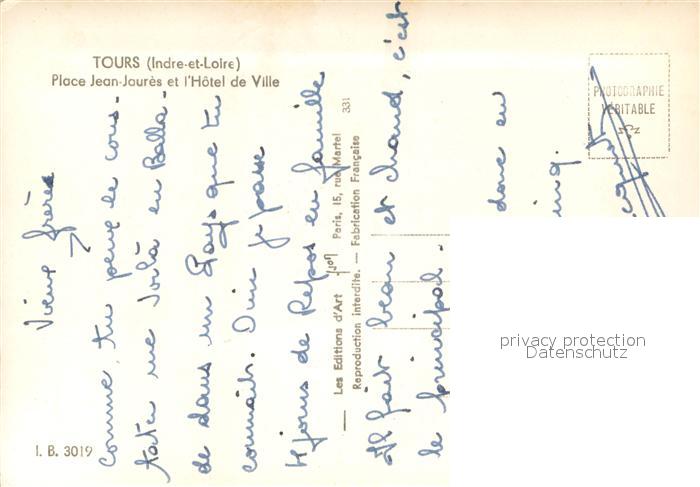 TOURS (Indre-et-Loire)
Place Jean-Jaurès et l'Hôtel de Ville
PHOTOGRAPHIE
VÉRITABLE
Vieux frère
comme, tu peux le cons-
tater me voilà en Balla-
de dans un Pays que tu
connais. Oui je passe
4 jours de Repos en famille
Il fait beau et chaud, c'est
le principal.
donc en
Les Editions d'Art Yvon Paris, 15, rue Martel 331
Reproduction interdite. — Fabrication Française
I. B. 3019
privacy protection
Datenschutz